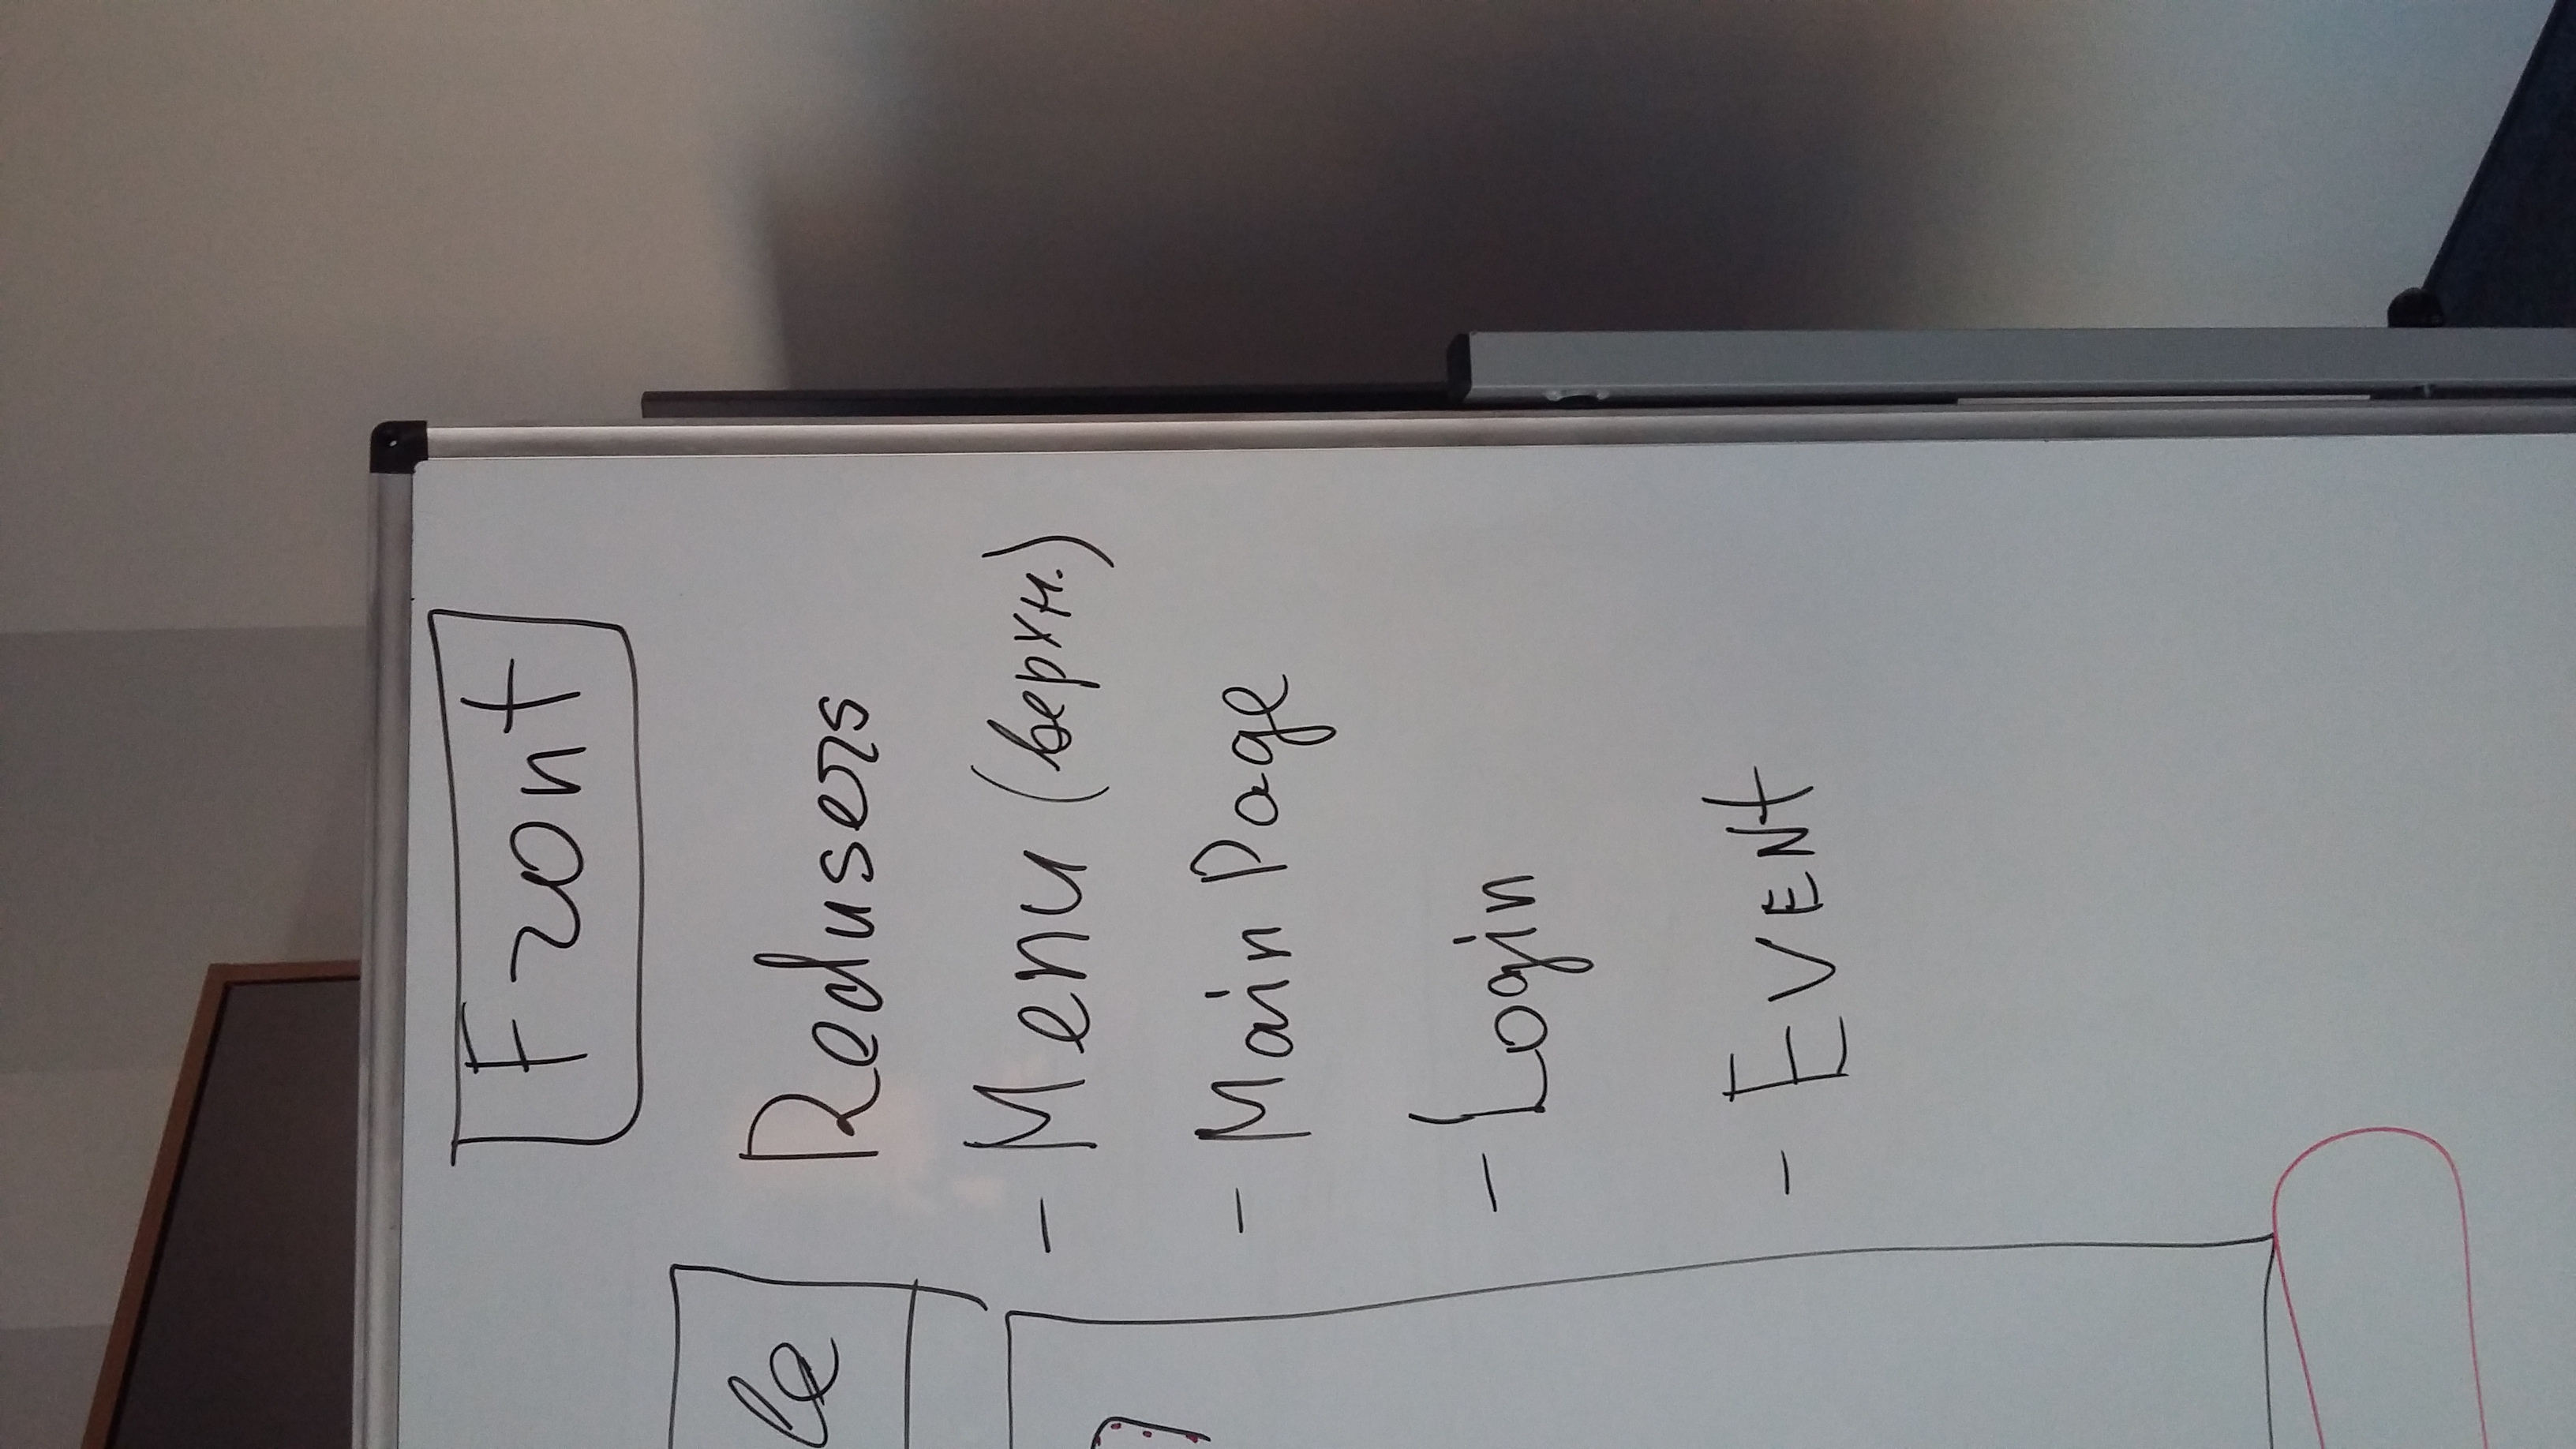 Front
le
Redusers
- Menu (верхн.)
- Main Page
- Login
- EVENt